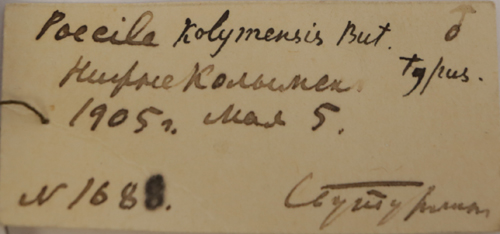 Poecile Kolymensis But. ♂
typus.
НижнеКолымск
1905г. Мая 5.
N 1688.
С Бутурлин